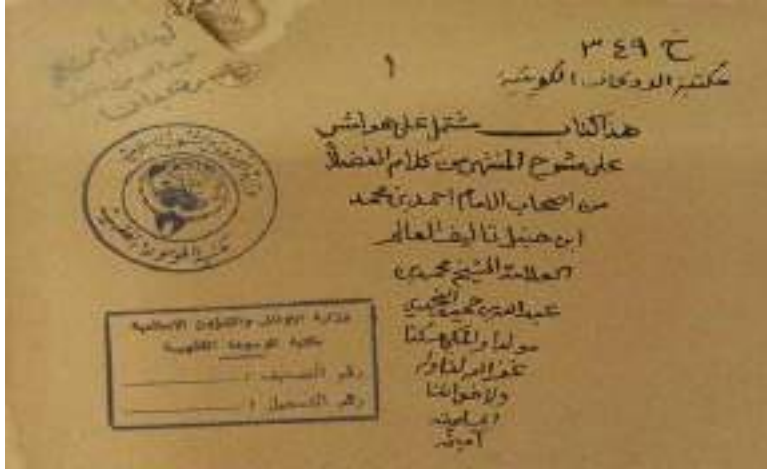 خ ٣٤٩
مكتبة الاوقاف الكويتية
١
هذا كتاب مشتمل على هوامش
على شرح المنتهى من كلام الفضلاء
من اصحاب الامام احمد بن محمد
ابن حنبل تاليف العالم
العلامة الشيخ محمد بن
عبد الله بن حميد النجدي
مولدا والمكي سكنا
غفر الله لنا وله
ولاخواننا
المسلمين
آمين
وزارة الاوقاف والشؤون الاسلامية
مكتبة الموسوعة الفقهية
رقم التصنيف :
رقم التسجيل :